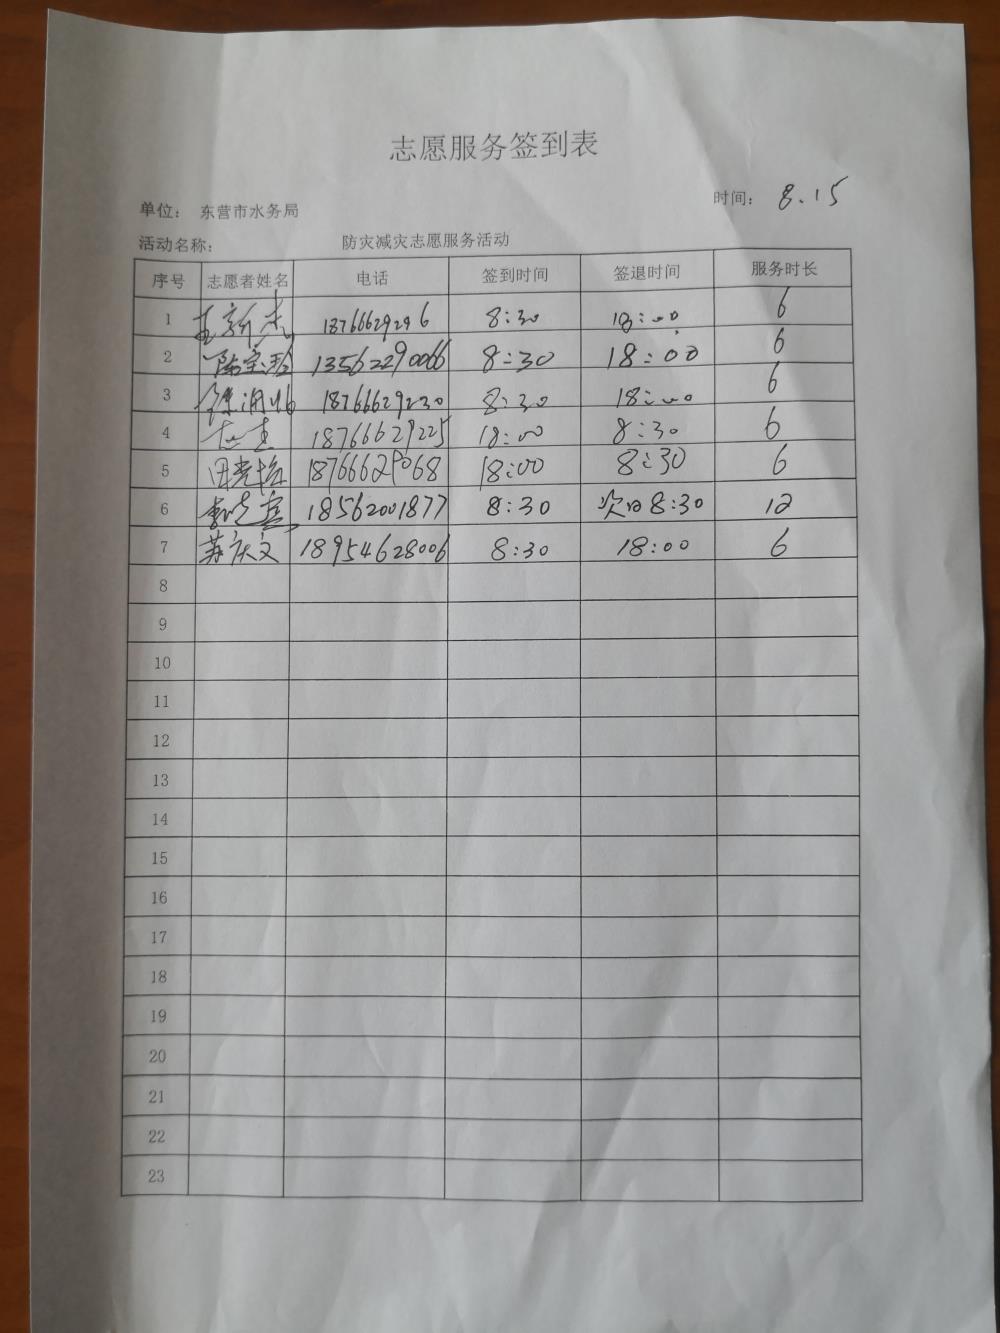 志愿服务签到表
单位： 东营市水务局 时间： 8.15
活动名称： 防灾减灾志愿服务活动
序号 志愿者姓名 电话 签到时间 签退时间 服务时长
1 18766629296 8:30 18:00 6
2 13562290066 8:30 18:00 6
3 18766629230 8:30 18:00 6
4 18766629225 18:00 8:30 6
5 18766629068 18:00 8:30 6
6 18562001877 8:30 次日8:30 12
7 苏庆文 18954628006 8:30 18:00 6
8
9
10
11
12
13
14
15
16
17
18
19
20
21
22
23